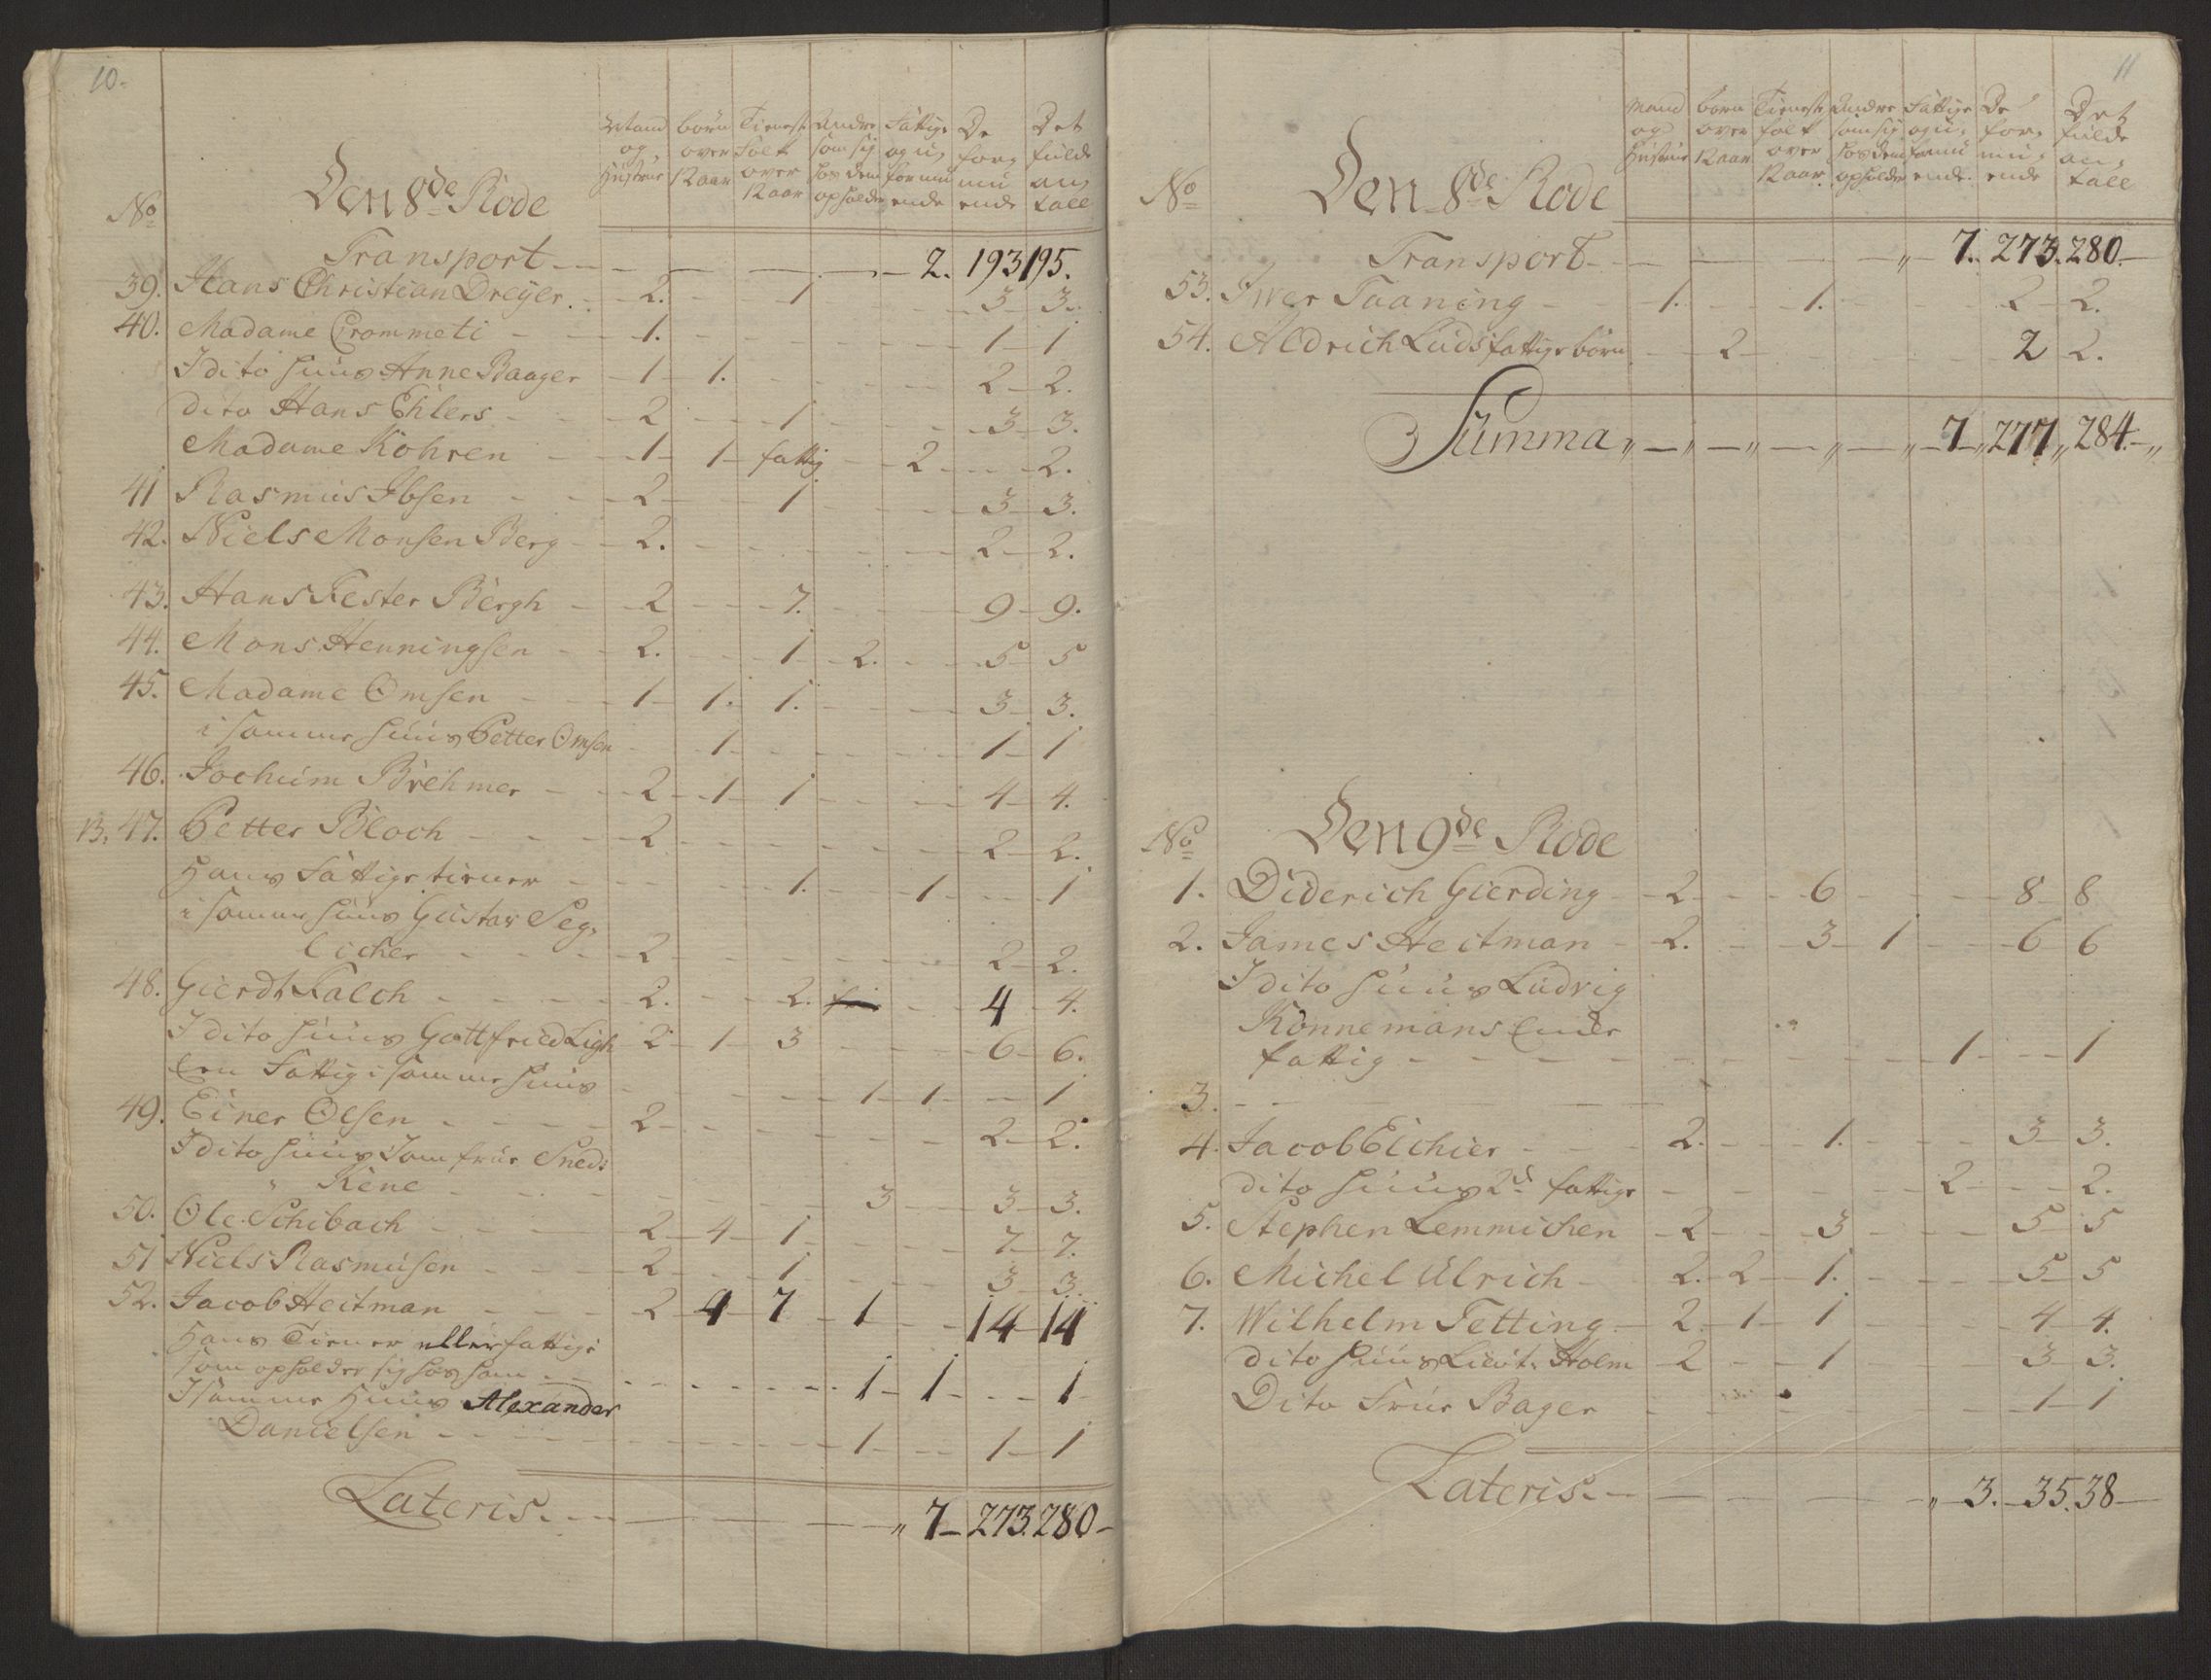 10.
Mand børn Tieneste Andre Fattige De Det
og over folk som sig og u for fulde
Hustrue 12 aar over hos dem formu mu an
12 aar opholder ende ende tall
No Den 8de Rode
Transport 2. 193 195.
39. Hans Christian Dreÿer. 2. 1 3 3.
40. Madame Crommeti 1. 1 1
I dito Huus Anne Baager 1 1. 2 2.
dito Hans Ehlers 2 1 3 3.
Madame Köhren 1 1 fattig 2 2.
41 Rasmus Ibsen 2 1 3 3.
42. Niels Monsen Berg 2. 2 2.
43. Hans Fester Bergh 2 7. 9 9.
44. Mons Henningsen 2. 1 2. 5 5
45. Madame Omsen 1 1. 1. 3 3.
i samme Huus Petter Omsen 1 1 1
46. Jochum Brehmer 2 1 1 4 4.
B. 47. Petter Bloch 2 2 2.
Hans Fattige tiener 1. 1 1
i samme Huus Gustav Seg,
licher 2 2 2.
48. Gierdt Falch 2. 2. fri 4 4.
I dito Huus Gottfried Ligh 2 1 3 6 6.
Een Fattig i samme Huus 1 1 1
49. Einer Olsen 2 2 2.
I dito Huus Jomfrue Sned:
Kene 3 3 3.
50. Ole Schibach 2 4 1 7 7.
51 Niels Rasmusen 2 1 3 3.
52. Jacob Heitman 2 4 7 1 14 14
Hans Tiener eller fattige
som opholder sig hos ham 1 1 1
I samme Huus Alexander
Danielsen 1 1 1
Lateris. 7 273. 280
11
Mand børn Tieneste Andre Fattige De Det
og over folk som sig og u, for, fulde
Hustrue 12 aar over hos dem formu mu, an,
12 aar opholder ende. ende tall
No Den 8de Rode
Transport 7. 273. 280.
53. Iwer Taaning 1. 1. 2 2.
54. Aldrich Luds fattige børn 2 2 2.
Summa 7 277 284.
No Den 9de Rode
1. Diderich Gierding 2 6 8 8
2. James Heitman 2. 3 1 6 6
I dito Huus Ludvig
Könnemans Encke
fattig 1 1
3.
4. Jacob Elchier 2. 1. 3 3.
dito Huus 2de fattige 2 2.
5. Stephen Lemmichen 2 3 5 5
6. Michel Ulrich 2. 2 1. 5 5
7. Wilhelm Tetting 2. 1 1 4 4.
dito Huus Lieut. Holm 2 1 3 3.
Dito Frue Bager 1 1
Lateris. 3. 35. 38